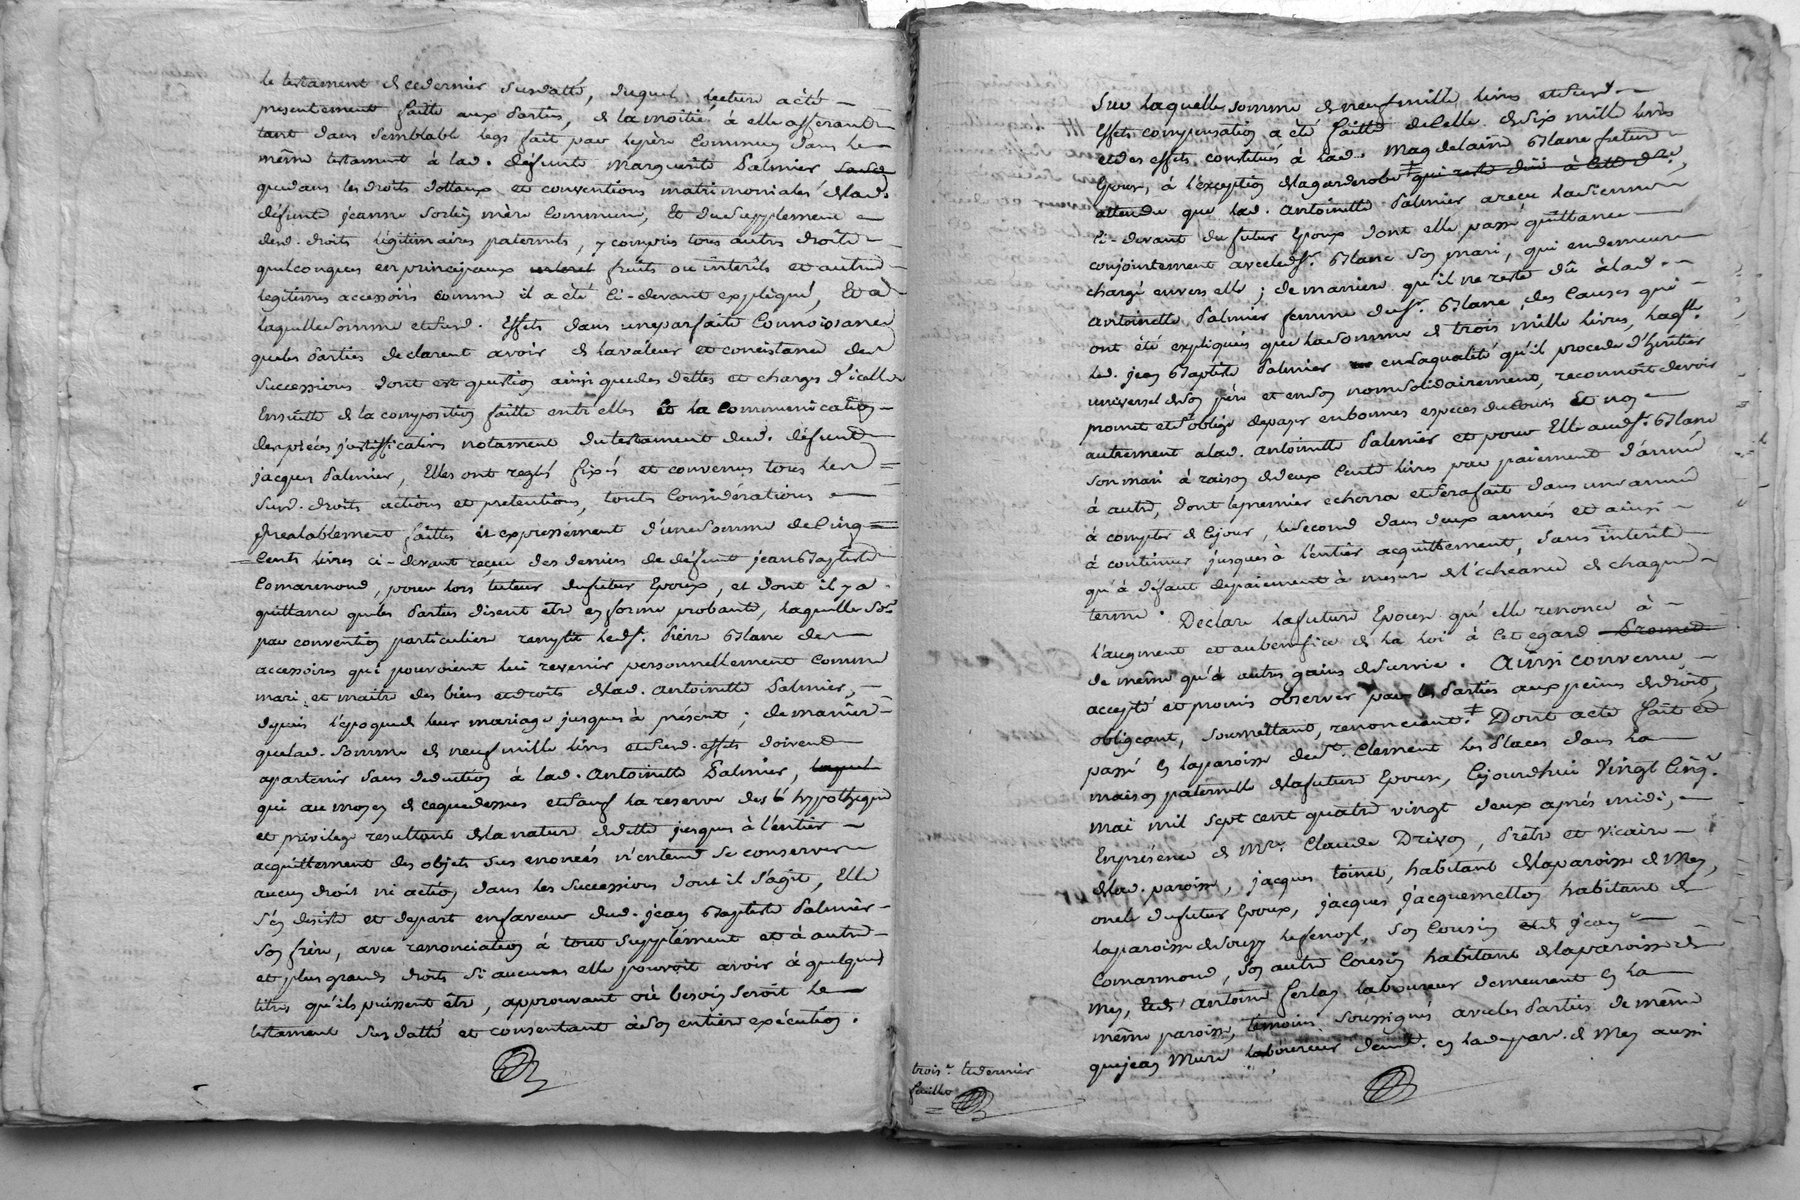 le testament de ce dernier susdatté, duquel lecture a été
presentement faitte aux parties, de la moitié à elle afferante
tant dans semblable legs fait par le père commun dans le
même testament à lad. défunte marguerite Palmier
que dans les droits dottaux et conventions matrimoniales de lad.
défunte jeanne mère commune, et du supplement
desd. droits légitimaires paternels, y compris tous autres droits
quelconques en principaux interet fruits ou interêts et autres
legitimes accessoirs comme il a été ci-devant expliqué, et a
laquelle somme et susd. effets dans une parfaite connoissance
que les parties declarent avoir de la valeur et concistance des
successions dont est question ainsi que des dettes et charges d'icelles
ensuitte de la composition faitte entre elles et la communication
des piéces justifficatives notament du testament dud. défunt
jacques Palmier, elles ont reglé fixés et convenus tous les
susd. droits actions et pretentions, touts considérations
prealablement faittes et expressement d'une somme de cinq
cents livres ci-devant reçue des deniers de défunt jean Baptiste
Comarmond, pour lors tuteur du futur epoux, et dont il y a
quittance que les parties disent être en forme probante, laquelle
par convention particuliere remplit led. sr. Pierre Blanc des
accessoires qui pouroient lui revenir personnellement comme
mari et maitre des biens et droits de lad. antoinette Palmier,
depuis l'epoque de leur mariage jusques à présent ; de maniere
que lad. somme de neuf mille livres et susd. effets doivent
apartenir sans deduction à lad. antoinette Palmier,
qui au moyen de ce que dessus et sauf la reserve des hypotheque
et privilege resultant de la nature de dette jusques à l'entier
acquittement des objets sus enoncés n'entend se conserver
aucun droit ni action dans les successions dont il s'agit, elle
s'en desiste et depart en faveur dud. jean Baptiste Palmier
son frère, avec renonciation à tout supplément et à autre
et plus grands droits si aucuns elle pouvoit avoir à quelques
titres qu'ils puissent être, approuvant où besoin seroit le
testament susdatté et consentant à son entiere exécution.
Sur laquelle somme de neuf mille livres et susd.
effets compensation a été faitte de celle de six mille livres
et des effets constitués à lad. Magdelaine Blanc future
epouse, à l'exception de la garderobe qui reste düe à
attendu que lad. antoinette Palmier a reçu la sienne
ci-devant du futur epoux dont elle passe quittance
conjointement avec led. sr. Blanc son mari, qui en demeure
chargé envers elle ; de maniere qu'il ne reste dû à lad.
antoinette Palmier femme dud. sr. Blanc, des causes qui
ont été expliquées que la somme de trois mille livres, laqlle.
led. jean Baptiste Palmier en sa qualité qu'il procede d'héritier
universel de son père et en son nom solidairement, reconnoit devoir
promet et s'oblige de payer en bonnes especes du cours et non
autrement a lad. antoinette Palmier et pour elle aud. sr. Blanc
son mari à raison de deux cents livres par paiement d'année
à autre, dont le premier echerra et sera fait dans une année
à compter de ce jour, le second dans deux années et ainsi
à continuer jusques à l'entier acquittement, sans interêts
qu'à défaut de paiement à mesure de l'echeance de chaque
terme. Declare la future epouse qu'elle renonce à
l'augment et au benefice de la loi à cet egard
de même qu'à autres gains de survie. Ainsi convenu,
accepté et promis observer par les parties aux peines de droit,
obligeant, soumettant, renonciant. Dont acte fait et
passé en la paroisse de St. Clement les Places dans la
maison paternelle de la future epouse, ce jourdhui vingt cinq
mai mil sept cent quatre vingt deux aprés midi,
En présence de Mre. Claude Drivon, Prêtre et vicaire
de lad. paroisse, jacques toinet, habitant de la paroisse de Mey,
oncle du futur epoux, jacques jacquemetton habitant de
la paroisse de Souzy son cousin et de jean
Comarmond, son autre cousin habitant de la paroisse de
Mey, et de antoine ferlay laboureur demeurant en la
même paroisse, temoins soussignés avec les parties de même
que jean Mure laboureur demt. en lad. par. de Mey aussi
trois.e et dernier
feuillet